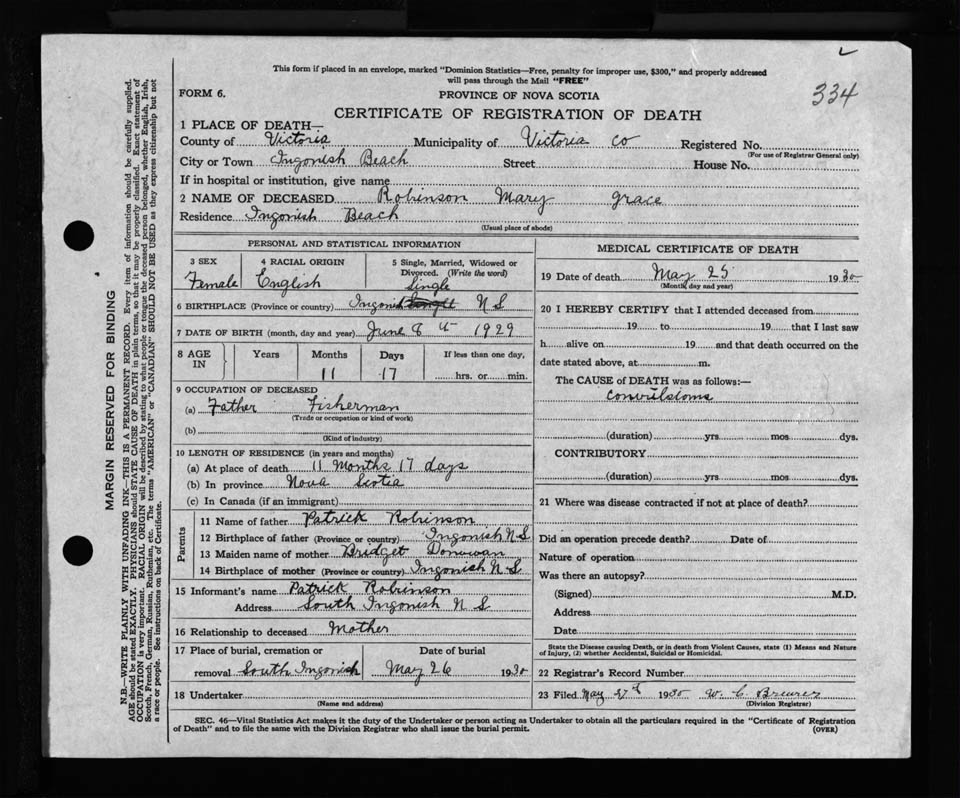 This form if placed in an envelope, marked "Dominion Statistics—Free, penalty for improper use, $300," and properly addressed
will pass through the Mail "FREE"
334
FORM 6.
PROVINCE OF NOVA SCOTIA
CERTIFICATE OF REGISTRATION OF DEATH
1 PLACE OF DEATH—
County of Victoria Municipality of Victoria Co Registered No.
(For use of Registrar General only)
City or Town Ingonish Beach Street House No.
If in hospital or institution, give name
2 NAME OF DECEASED Robinson Mary grace
Residence Ingonish Beach
(Usual place of abode)
PERSONAL AND STATISTICAL INFORMATION
3 SEX 4 RACIAL ORIGIN 5 Single, Married, Widowed or
Divorced. (Write the word)
Female English Single
6 BIRTHPLACE (Province or country) Ingonish N S
7 DATE OF BIRTH (month, day and year) June 8 th 1929
8 AGE IN Years Months Days If less than one day,
11 17 hrs. or min.
9 OCCUPATION OF DECEASED
(a) Father Fisherman
(Trade or occupation or kind of work)
(b)
(Kind of industry)
10 LENGTH OF RESIDENCE (in years and months)
(a) At place of death 11 Months 17 days
(b) In province Nova Scotia
(c) In Canada (if an immigrant)
Parents
11 Name of father Patrick Robinson
12 Birthplace of father (Province or country) Ingonish N S
13 Maiden name of mother Bridget Donovan
14 Birthplace of mother (Province or country) Ingonish N S
15 Informant's name Patrick Robinson
Address South Ingonish N S
16 Relationship to deceased Mother
17 Place of burial, cremation or Date of burial
removal South Ingonish May 26 1930
18 Undertaker
(Name and address)
MEDICAL CERTIFICATE OF DEATH
19 Date of death May 25 1930
(Month, day and year)
20 I HEREBY CERTIFY that I attended deceased from
19 to 19 that I last saw
h alive on 19 and that death occurred on the
date stated above, at m.
The CAUSE of DEATH was as follows:—
Convulsions
(duration) yrs mos dys.
CONTRIBUTORY
(duration) yrs mos dys.
21 Where was disease contracted if not at place of death?
Did an operation precede death? Date of
Nature of operation
Was there an autopsy?
(Signed) M.D.
Address
Date
State the Disease causing Death, or in death from Violent Causes, state (1) Means and Nature
of Injury, (2) whether Accidental, Suicidal or Homicidal.
22 Registrar's Record Number
23 Filed May 27th 1930 W. C. Brewer
(Division Registrar)
SEC. 46—Vital Statistics Act makes it the duty of the Undertaker or person acting as Undertaker to obtain all the particulars required in the "Certificate of Registration
of Death" and to file the same with the Division Registrar who shall issue the burial permit.
(OVER)
MARGIN RESERVED FOR BINDING
N.B.—WRITE PLAINLY WITH UNFADING INK—THIS IS A PERMANENT RECORD. Every item of information should be carefully supplied.
AGE should be stated EXACTLY. PHYSICIANS should STATE CAUSE OF DEATH in plain terms, so that it may be properly classified. Exact statement of
OCCUPATION is very important. RACIAL ORIGIN will be described by stating to what people or tongue the deceased person belonged, whether English, Irish,
Scotch, French, German, Russian, Ruthenian, etc. The terms "AMERICAN" or "CANADIAN" SHOULD NOT BE USED as they express citizenship but not
a race or people. See instructions on back of Certificate.